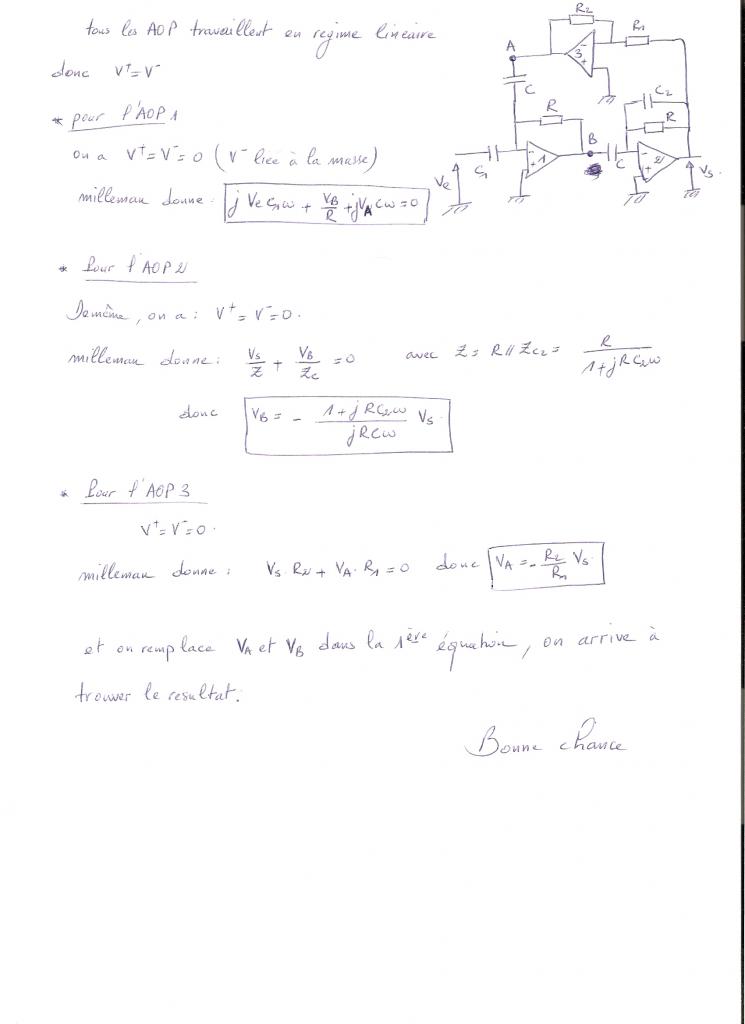 tous les AOP travaillent en regime lineaire
donc V⁺ = V⁻
* pour l'AOP 1
on a V⁺ = V⁻ = 0 ( V⁻ liee à la masse)
milleman donne : j Ve C₁ω + VB/R + jVA Cω = 0
* Pour l'AOP 2
Demême, on a : V⁺ = V⁻ = 0.
milleman donne : Vs/Z + VB/Zc = 0 avec Z = R // Zc₂ = R/(1+jRC₂ω)
donc VB = - (1+jRC₂ω)/(jRCω) Vs
* Pour l'AOP 3
V⁺ = V⁻ = 0.
milleman donne : Vs. R₂ + VA. R₁ = 0 donc VA = - R₂/R₁ Vs.
et on remplace VA et VB dans la 1ère équation, on arrive à
trouver le resultat.
Bonne chance
R₂
A
3
-
+
R₁
C
R
C₂
R
B
Ve
C₁
-
+
1
C
-
+
2
Vs.